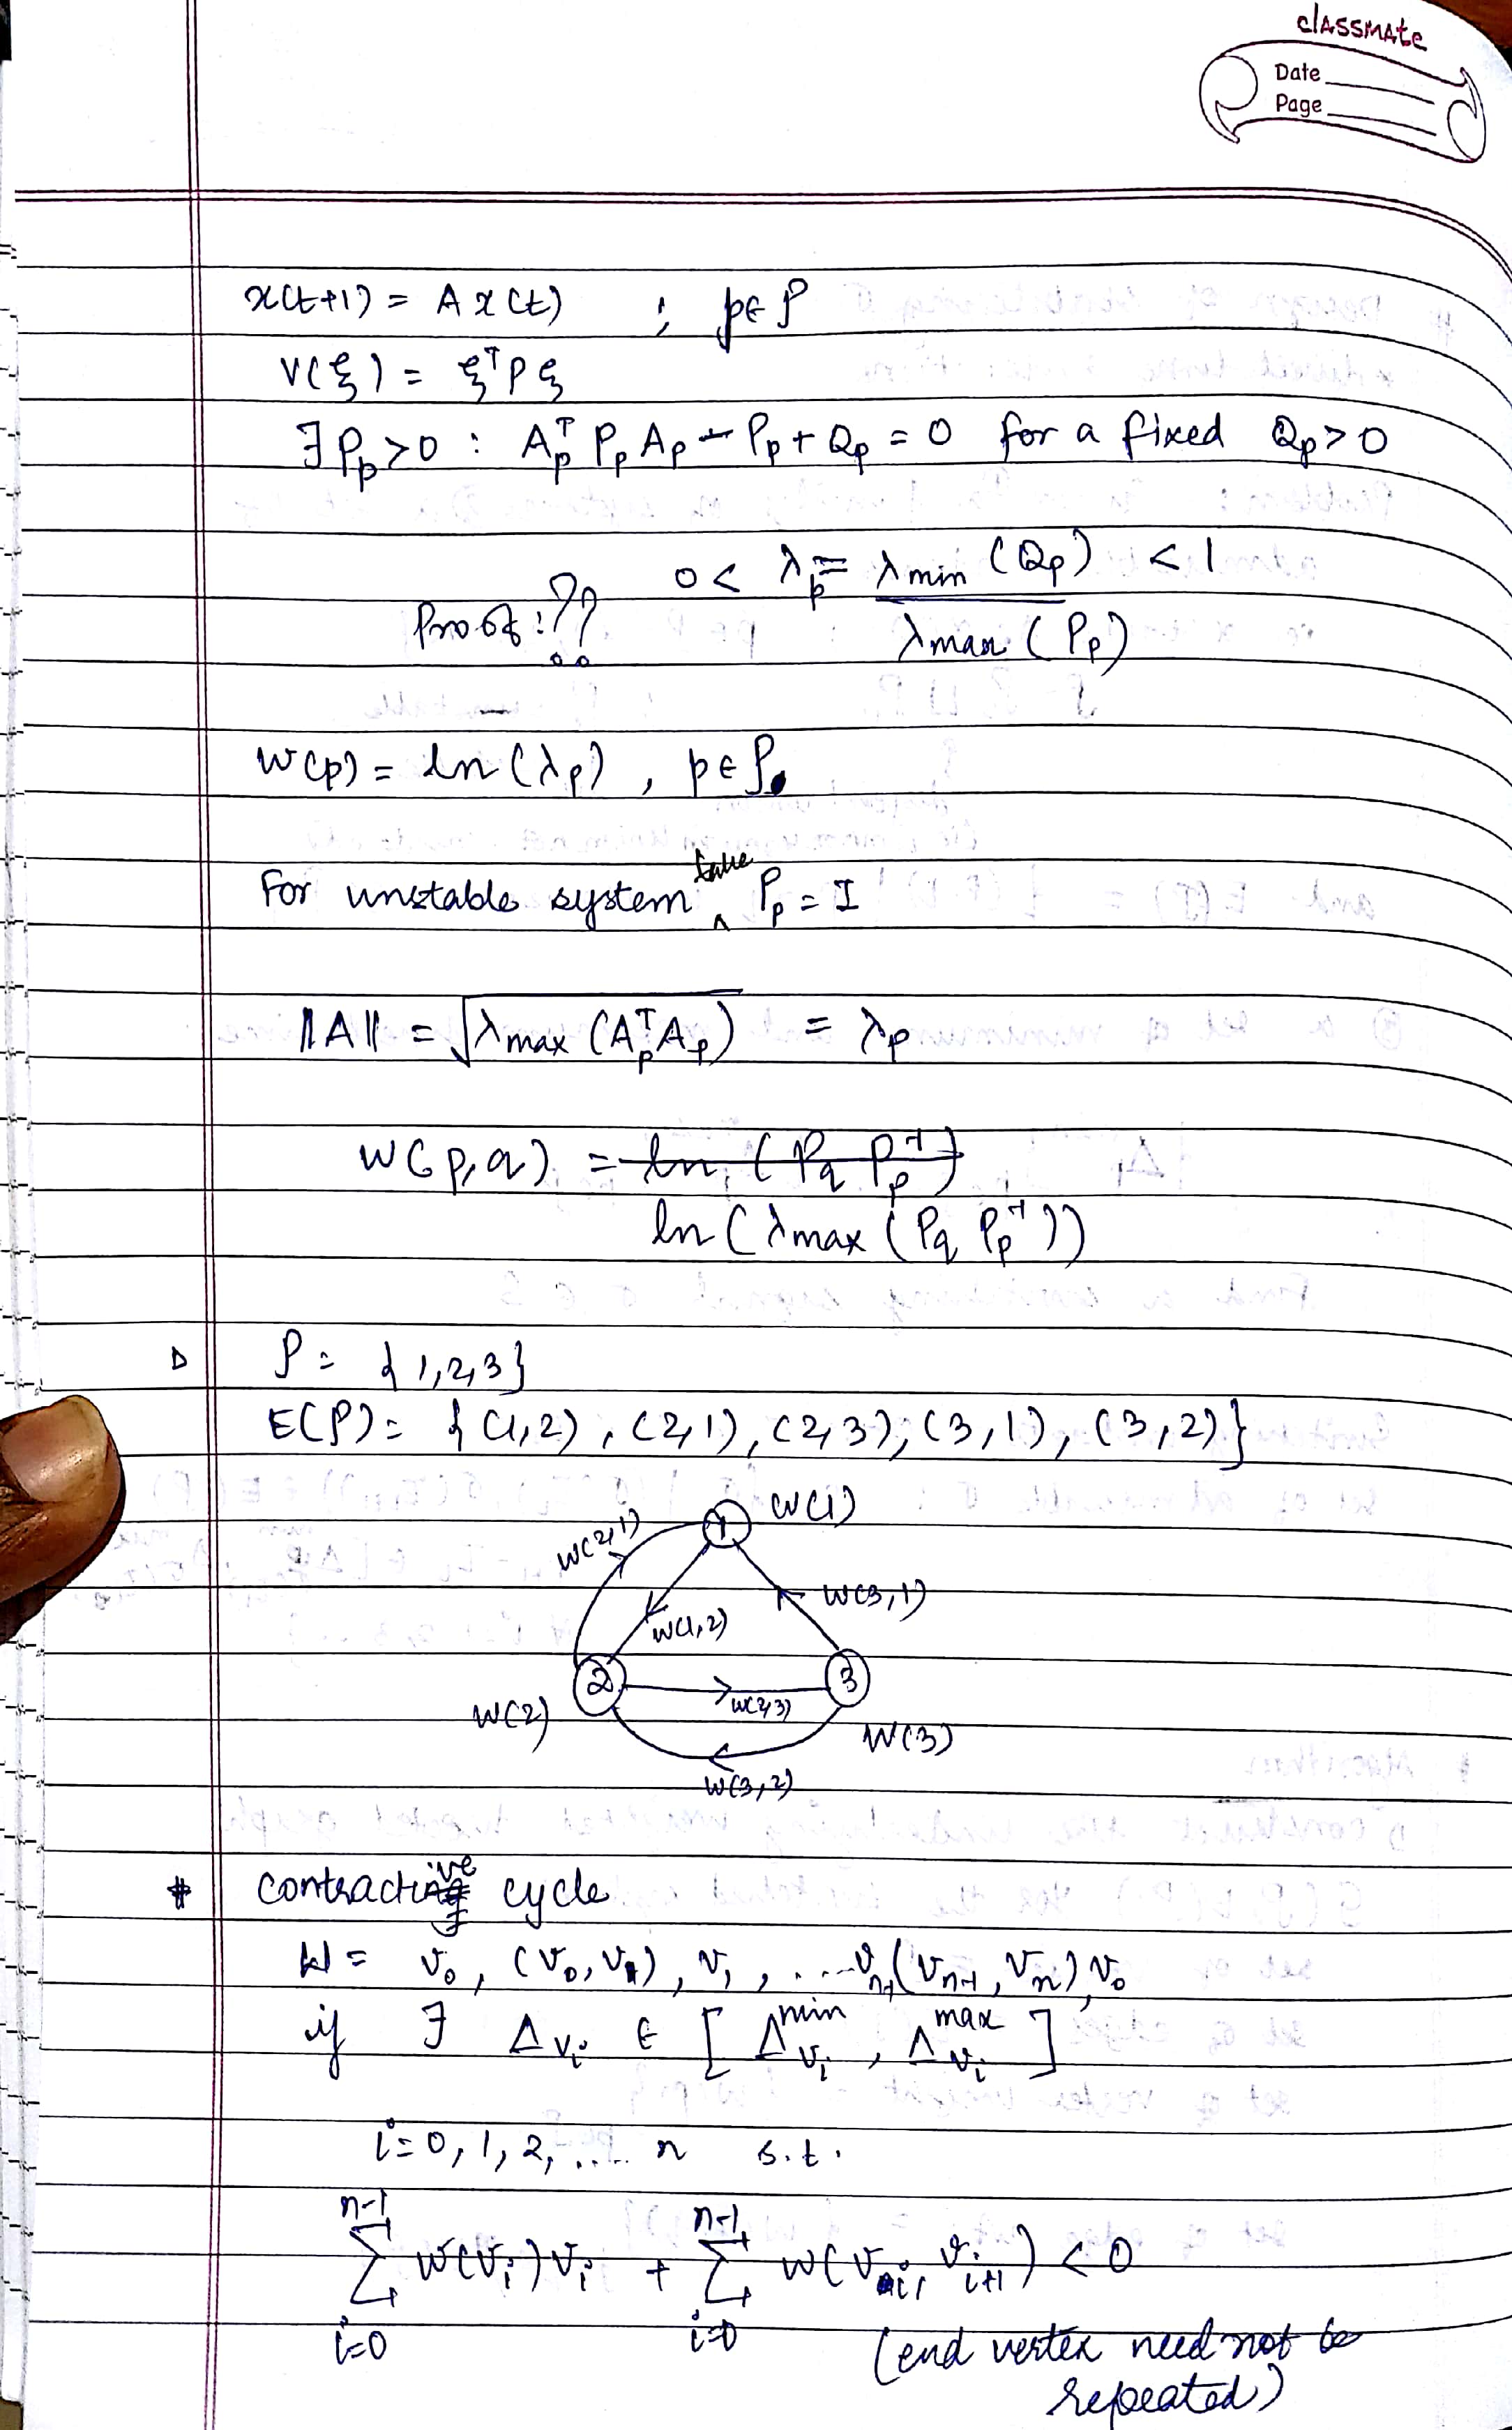 classmate
Date
Page
x(t+1) = A x(t) ; p∈P
V(ξ) = ξᵀPξ
∃ P_p>0 : A_pᵀ P_p A_p − P_p + Q_p = 0 for a fixed Q_p>0
0 < λ_p = λmin (Q_p) / λmax (P_p) < 1
Proof : ??
w(p) = ln (λ_p) , p∈P
For unstable system take P_p = I
||A|| = √λmax (A_pᵀA_p) = λ_p
w(p,q) = ln (P_q P_p⁻¹)
ln (λmax (P_q P_p⁻¹))
P = {1,2,3}
E(P) = {(1,2), (2,1), (2,3), (3,1), (3,2)}
1 w(1)
w(2,1)
w(3,1)
w(1,2)
2 3
w(2,3)
w(2) w(3)
w(3,2)
* contractive cycle
W = v₀, (v₀, v₁), v₁, .... vₙ₋₁ (vₙ₋₁, vₙ), v₀
if ∃ Δv_i ∈ [Δ^min_v_i , Δ^max_v_i]
i=0, 1, 2, .... n s.t.
∑_{i=0}^{n-1} w(v_i) v_i + ∑_{i=0}^{n-1} w(v_i, v_{i+1}) < 0
(end vertex need not be
repeated)